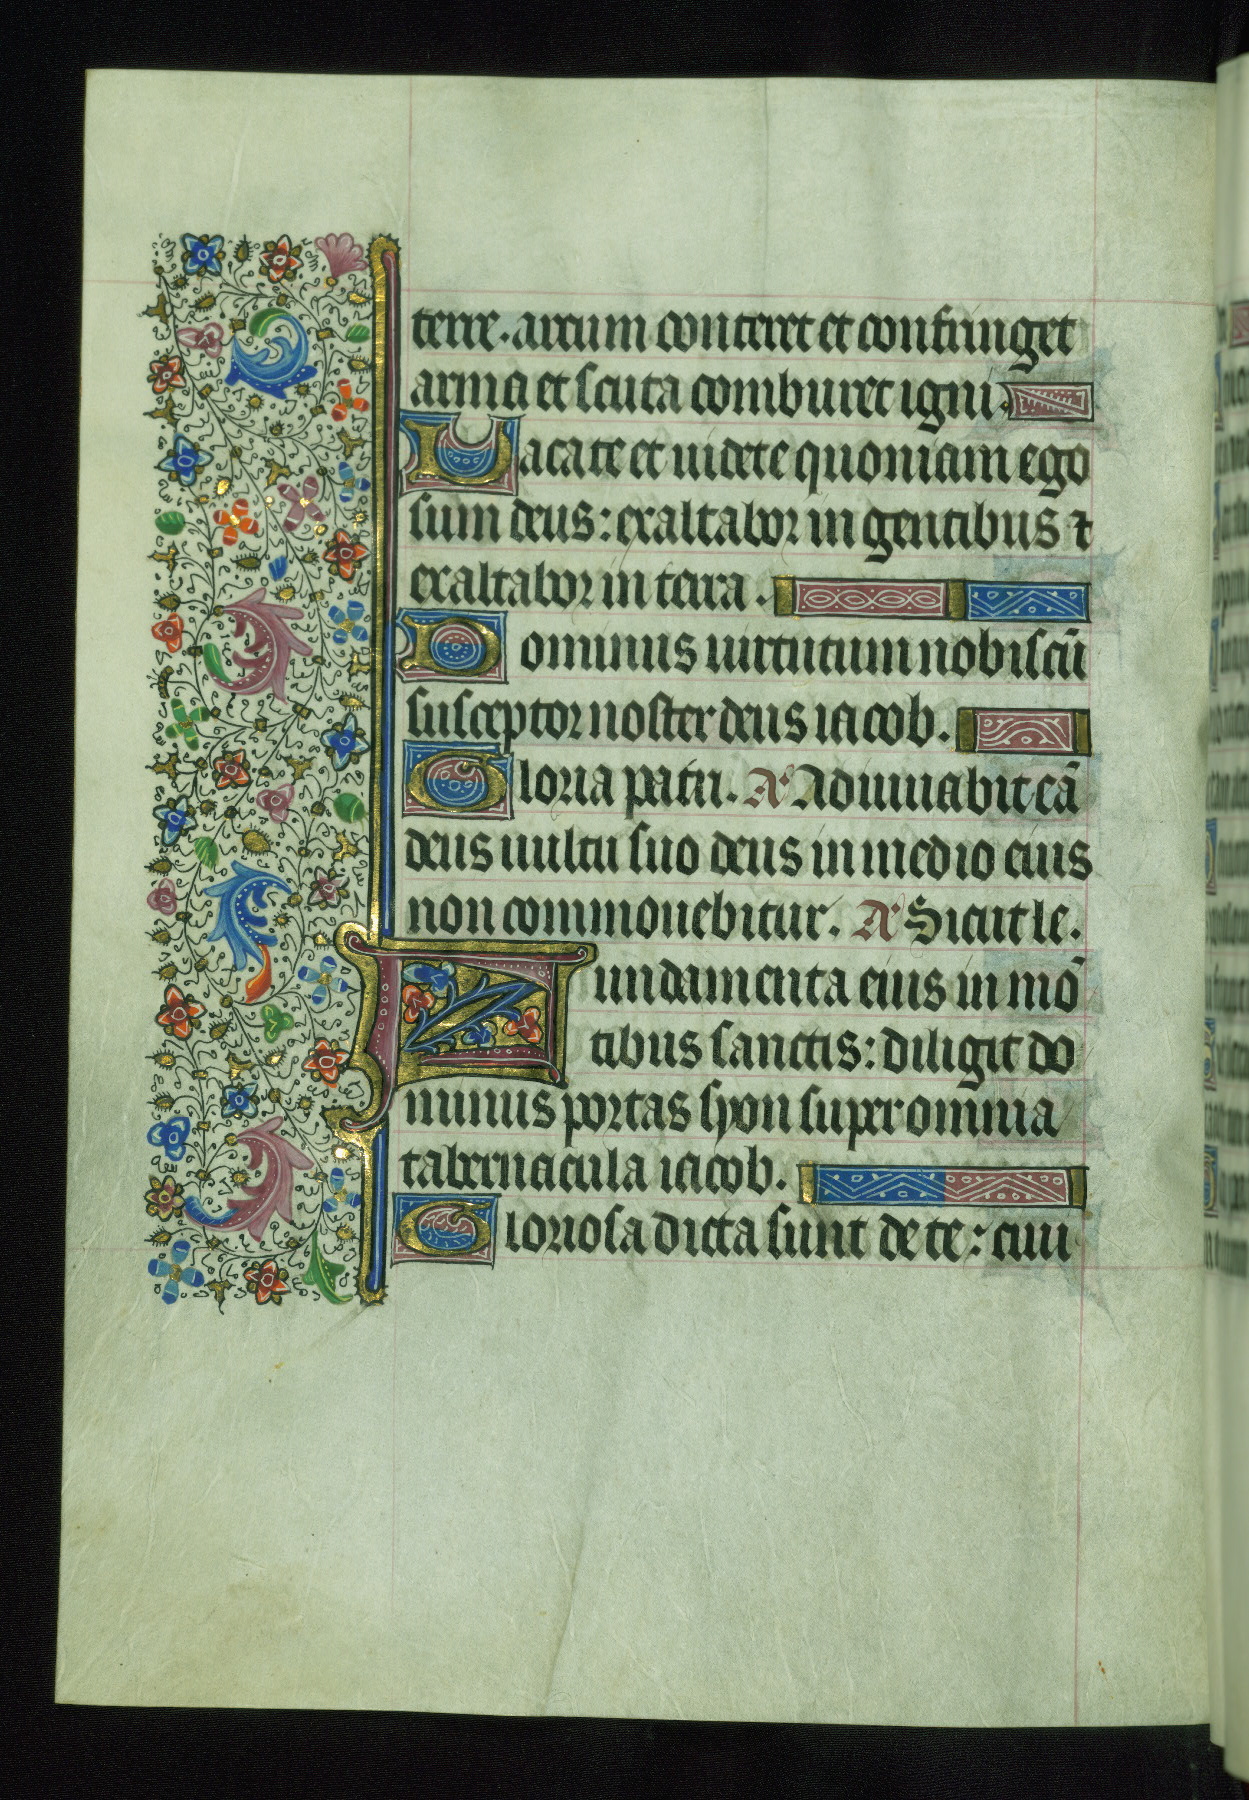 terre. arcum conteret et confringet
arma et scuta comburet igni.
Vacate et uidete quoniam ego
sum deus: exaltabor in gentibus ⁊
exaltabor in terra.
Dominus uirtutum nobiscū
susceptor noster deus iacob.
Gloria patri. A Adiuuabit eā
deus uultu suo deus in medio eius
non commouebitur. A Sicut le.
Fundamenta eius in mō
tibus sanctis: diligit do
minus portas syon super omnia
tabernacula iacob.
Gloriosa dicta sunt de te: ciui